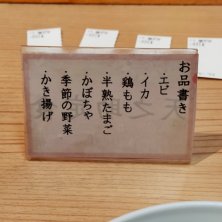 お品書き
・エビ
・イカ
・鶏もも
・半熟たまご
・かぼちゃ
・季節の野菜
・かき揚げ